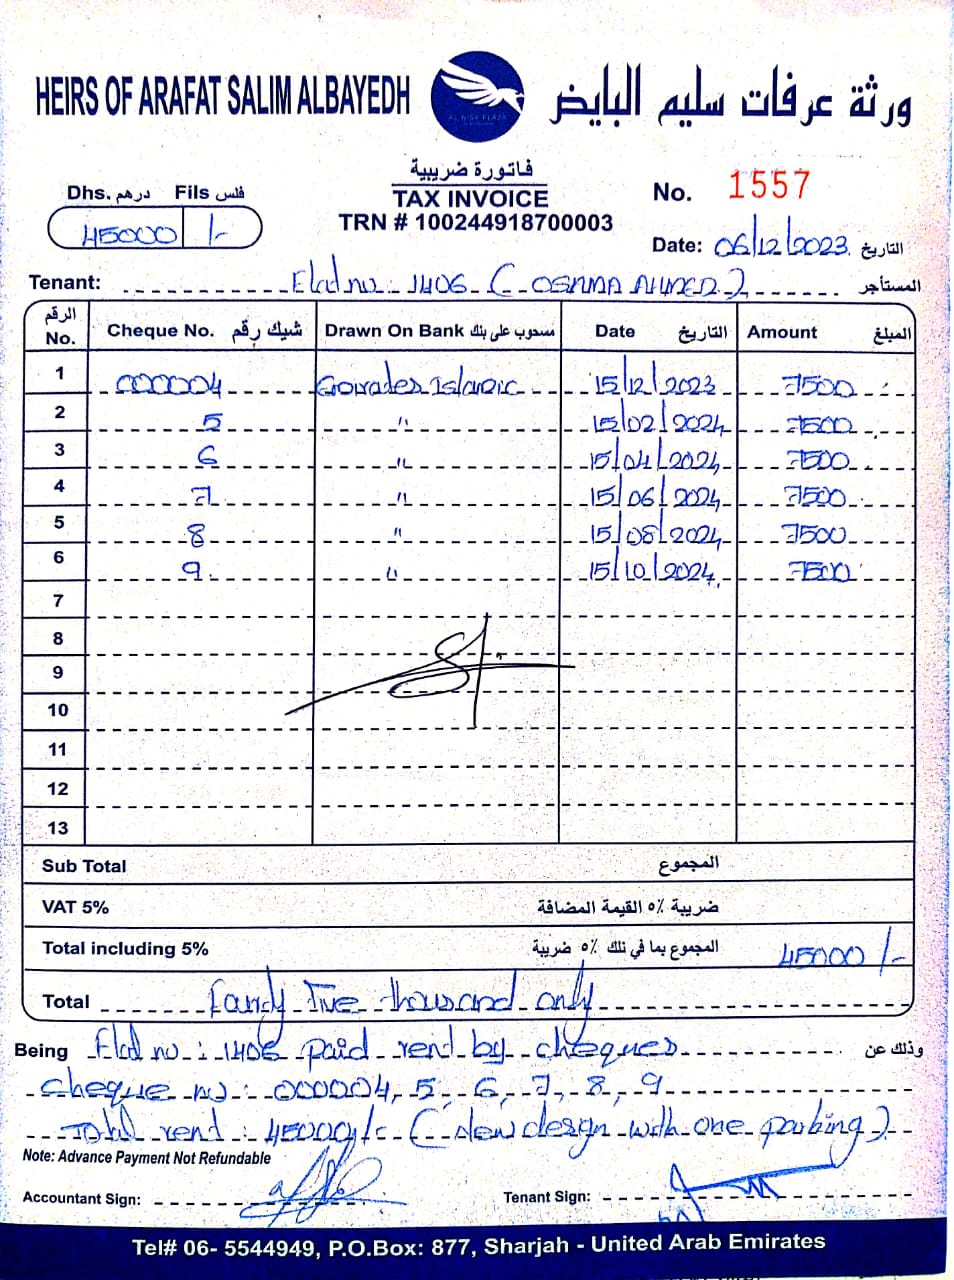 HEIRS OF ARAFAT SALIM ALBAYEDH
ورثة عرفات سليم البايض
AL NISR PLAZA
فاتورة ضريبية
TAX INVOICE
TRN # 100244918700003
No. 1557
Dhs. درهم Fils فلس
45000 /-
Date: 06/12/2023 التاريخ
Tenant: Flat no: 1406 (OSAMA AHMED) المستأجر
الرقم No. Cheque No. شيك رقم Drawn On Bank مسحوب على بنك Date التاريخ Amount المبلغ
1 000004 Islamic 15/12/2023 7500
2 5 " 15/02/2024 7500
3 6 " 15/04/2024 7500
4 7 " 15/06/2024 7500
5 8 " 15/08/2024 7500
6 9 " 15/10/2024 7500
7
8
9
10
11
12
13
Sub Total المجموع
VAT 5% ضريبة ٥٪ القيمة المضافة
Total including 5% المجموع بما في تلك ٥٪ ضريبة 45000/-
Total Fourty Five thousand only
Being Flat no: 1406 paid rent by cheques وذلك عن
cheque no: 000004, 5, 6, 7, 8, 9
Total rent: 45000/- (New design with one parking)
Note: Advance Payment Not Refundable
Accountant Sign: Tenant Sign:
Tel# 06- 5544949, P.O.Box: 877, Sharjah - United Arab Emirates